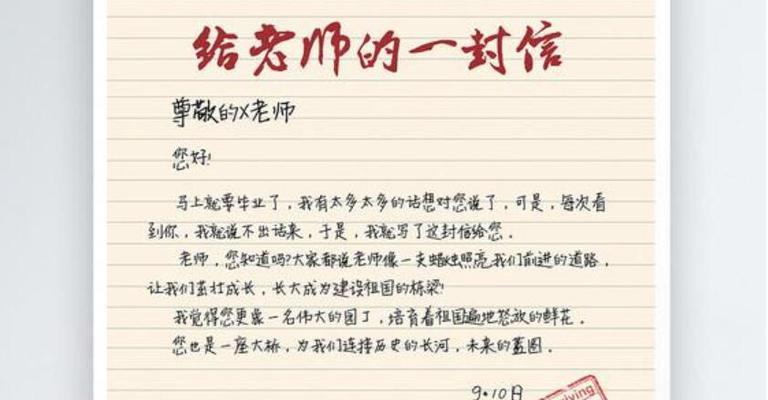 给老师的一封信
尊敬的X老师
您好!
马上就要毕业了，我有太多太多的话想对您说了，可是，每次看
到你，我就说不出话来，于是，我就写了这封信给您．
老师，您知道吗?大家都说老师像一支蜡烛照亮我们前进的道路，
让我们茁壮成长，长大成为建设祖国的栋梁!
我觉得您更象一名伟大的园丁，培育着祖国遍地怒放的鲜花．
您也是一座大桥，为我们连接历史的长河，未来的蓝图．
9·10日